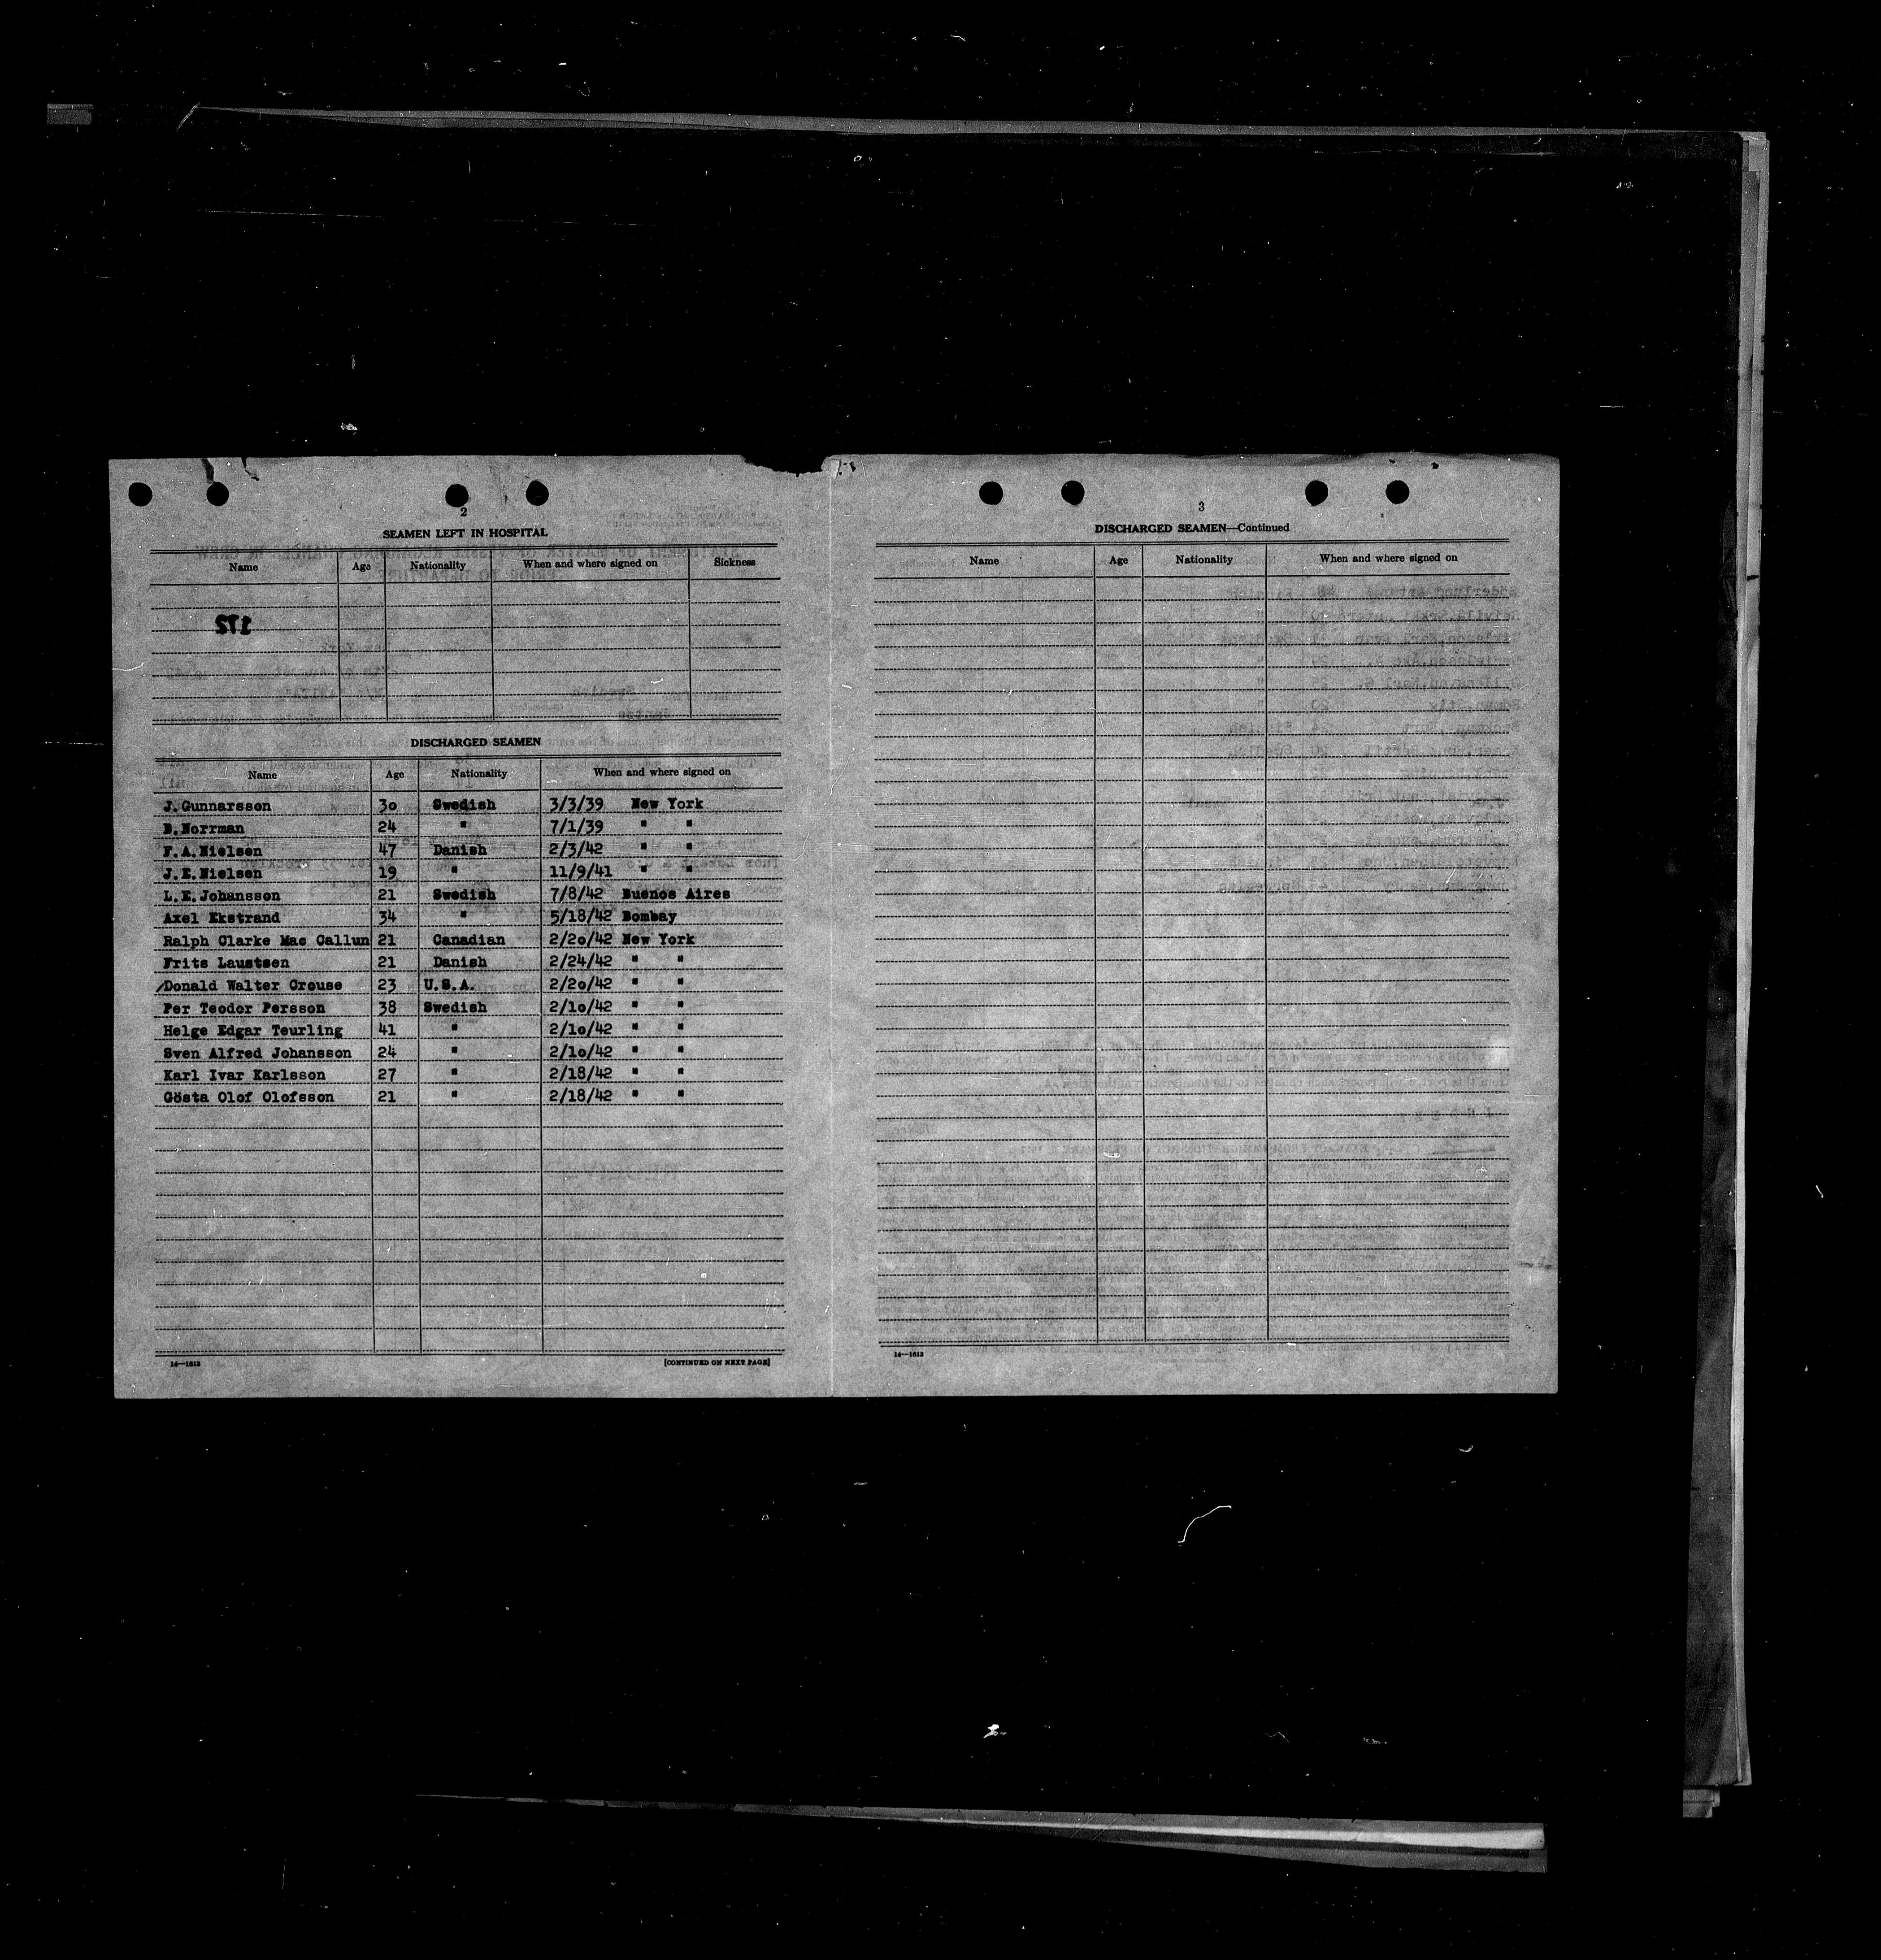 2
SEAMEN LEFT IN HOSPITAL
Name Age Nationality When and where signed on Sickness
172
DISCHARGED SEAMEN
Name Age Nationality When and where signed on
J.Gunnarsson 30 Swedish 3/3/39 New York
B.Norrman 24 " 7/1/39 " "
F.A.Nielsen 47 Danish 2/3/42 " "
J.E.Nielsen 19 " 11/9/41 " "
L.E.Johansson 21 Swedish 7/8/42 Buenos Aires
Axel Ekstrand 34 " 5/18/42 Bombay
Ralph Clarke Mac Callum 21 Canadian 2/20/42 New York
Frits Laustsen 21 Danish 2/24/42 " "
/Donald Walter Crouse 23 U.S.A. 2/20/42 " "
Per Teodor Persson 38 Swedish 2/10/42 " "
Helge Edgar Teurling 41 " 2/10/42 " "
Sven Alfred Johansson 24 " 2/10/42 " "
Karl Ivar Karlsson 27 " 2/18/42 " "
Gösta Olof Olofsson 21 " 2/18/42 " "
14—1613 [CONTINUED ON NEXT PAGE]
3
DISCHARGED SEAMEN—Continued
Name Age Nationality When and where signed on
14—1613